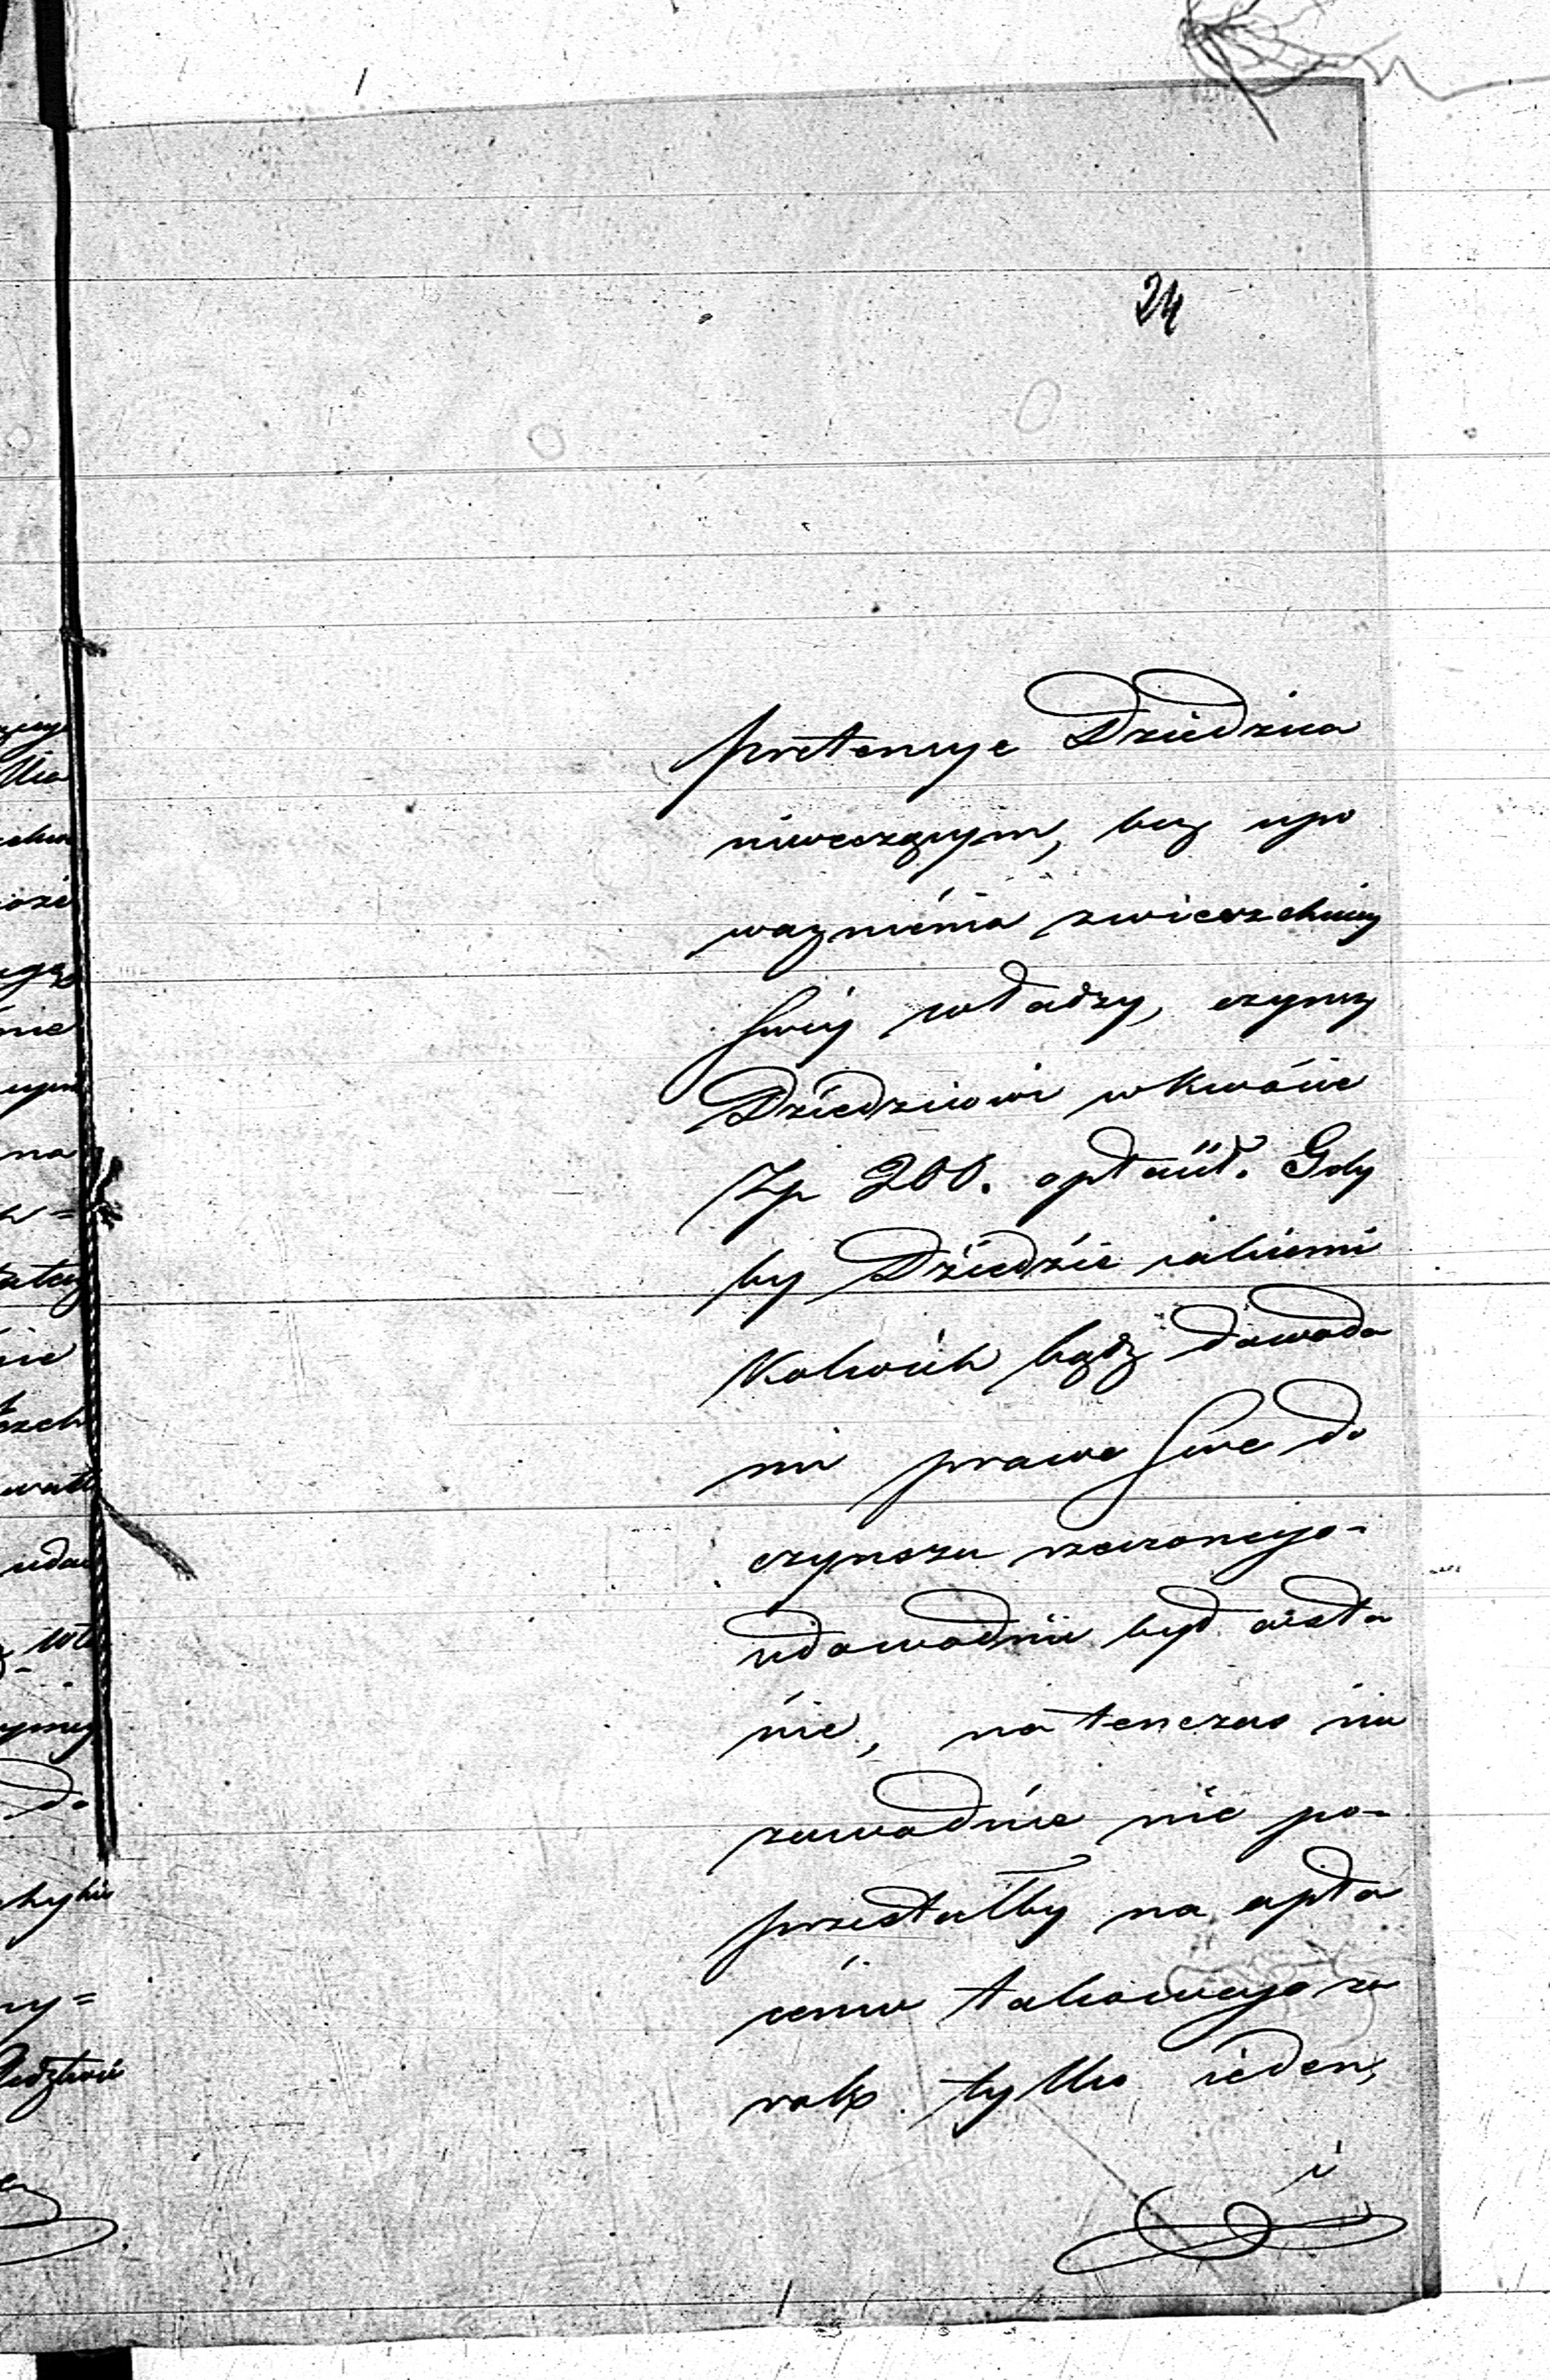 24
pretensye Dziedzica
niweczącym, bez upo
ważnienia zwierzchniy
swéy władzy, czynsz
Dziedzicowi w kwocie
Zp 200. opłacił. Gdy
by Dziedzic jakiemi
kolwiek bądź dowoda
mi prawo swe do
czynszu rzeczonego-
udowodnić był wsta
nie, natenczas nie
zawodnie nie po-
przestałby na opła
ceniu takowego za
rok tylko ieden,
i